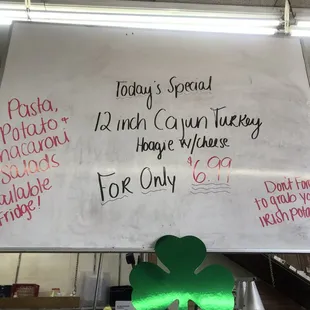 Today's Special
12 inch Cajun Turkey
Hoagie w/cheese
For Only $6.99
Pasta,
Potato +
macaroni
Salads
available
Fridge!
Don't For
to grab yo
irish pota